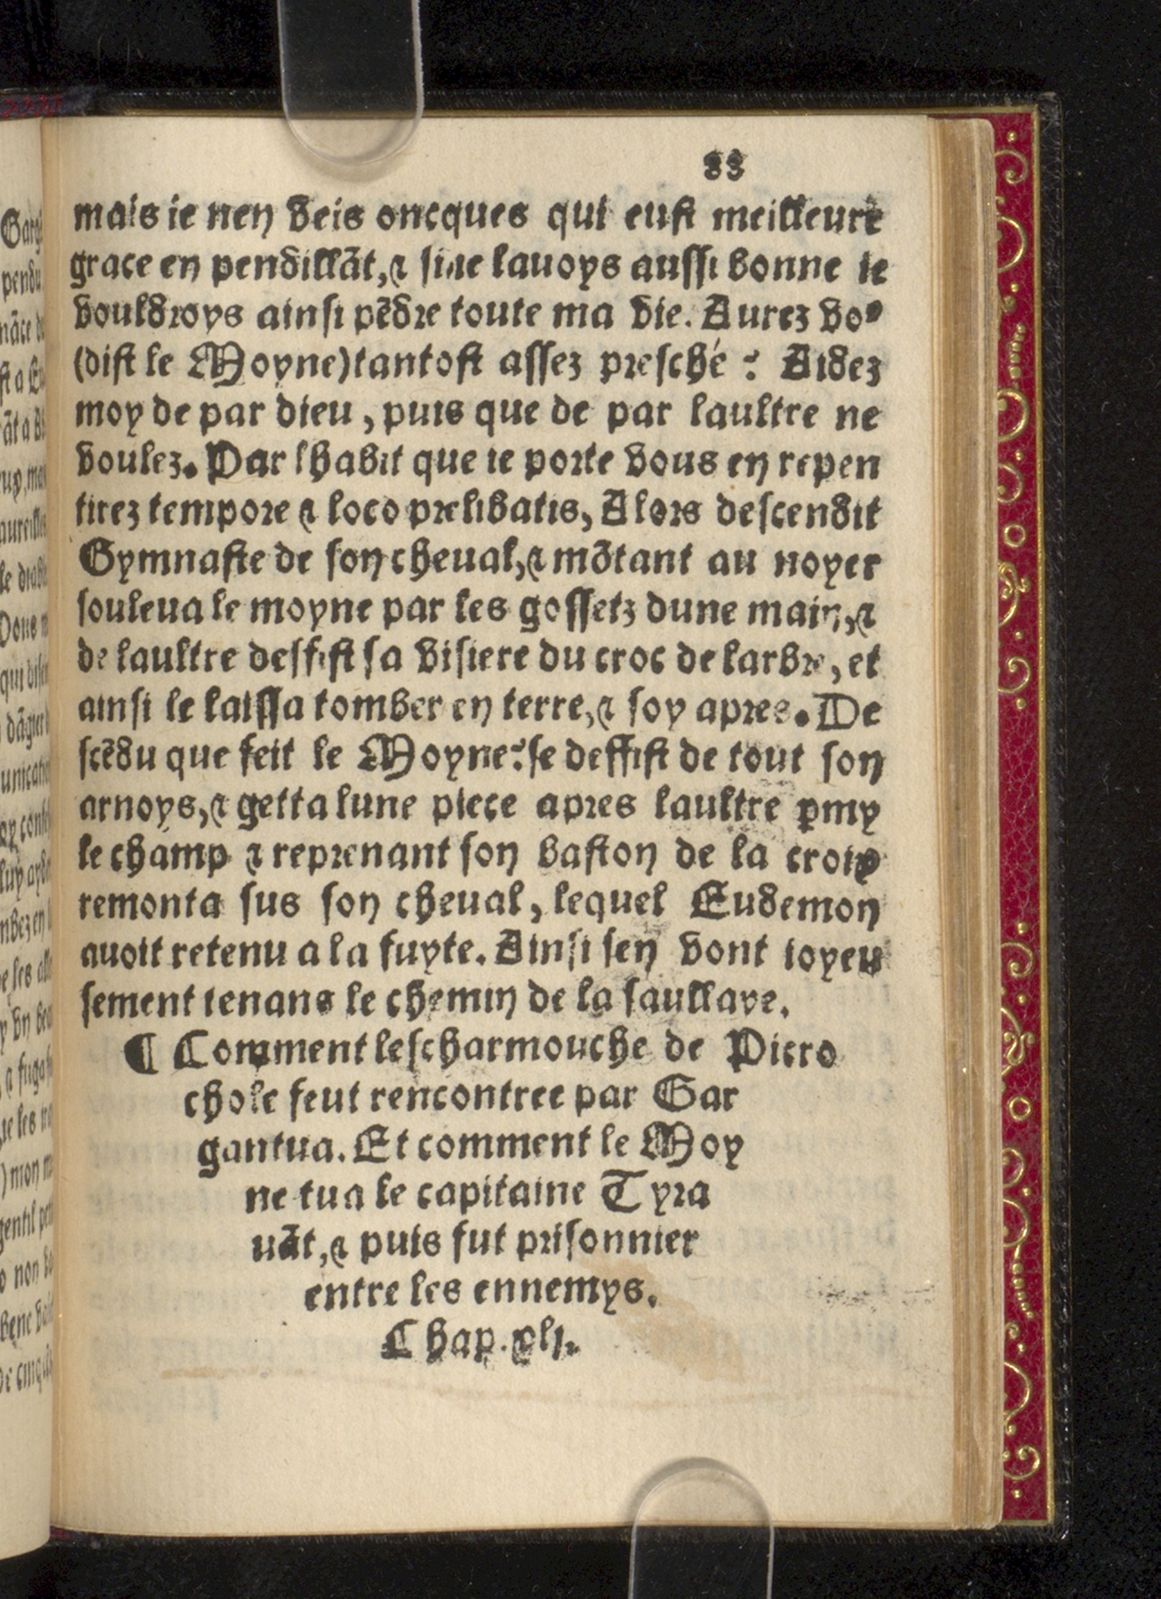 88
mais ie nen veis oncques qui eust meilleure
grace en pendillãt, ⁊ si ie lauoys aussi bonne ie
vouldroys ainsi pẽdre toute ma vie. Aurez voꝰ
(dist le Moyne) tantost assez presché? Aidez
moy de par dieu, puis que de par laultre ne
voulez. Par lhabit que ie porte vous en repen
tirez tempore ⁊ loco prelibatis, Alors descendit
Gymnaste de son cheual, ⁊ mõtant au noyer
souleua le moyne par les gossetz dune main, ⁊
de laultre desfist sa visiere du croc de larbre, et
ainsi le laissa tomber en terre, ⁊ soy apres. De
scẽdu que feit le Moyne: se deffist de tout son
arnoys, ⁊ getta lune piece apres laultre ꝑmy
le champ ⁊ reprenant son baston de la croix
remonta sus son cheual, lequel Eudemon
auoit retenu a la fuyte. Ainsi sen vont ioyeu
sement tenans le chemin de la saullaye.
¶ Comment lescharmouche de Picro
chole feut rencontree par Gar
gantua. Et comment le Moy
ne tua le capitaine Tyra
uãt, ⁊ puis fut prisonnier
entre les ennemys.
Chap. xlj.